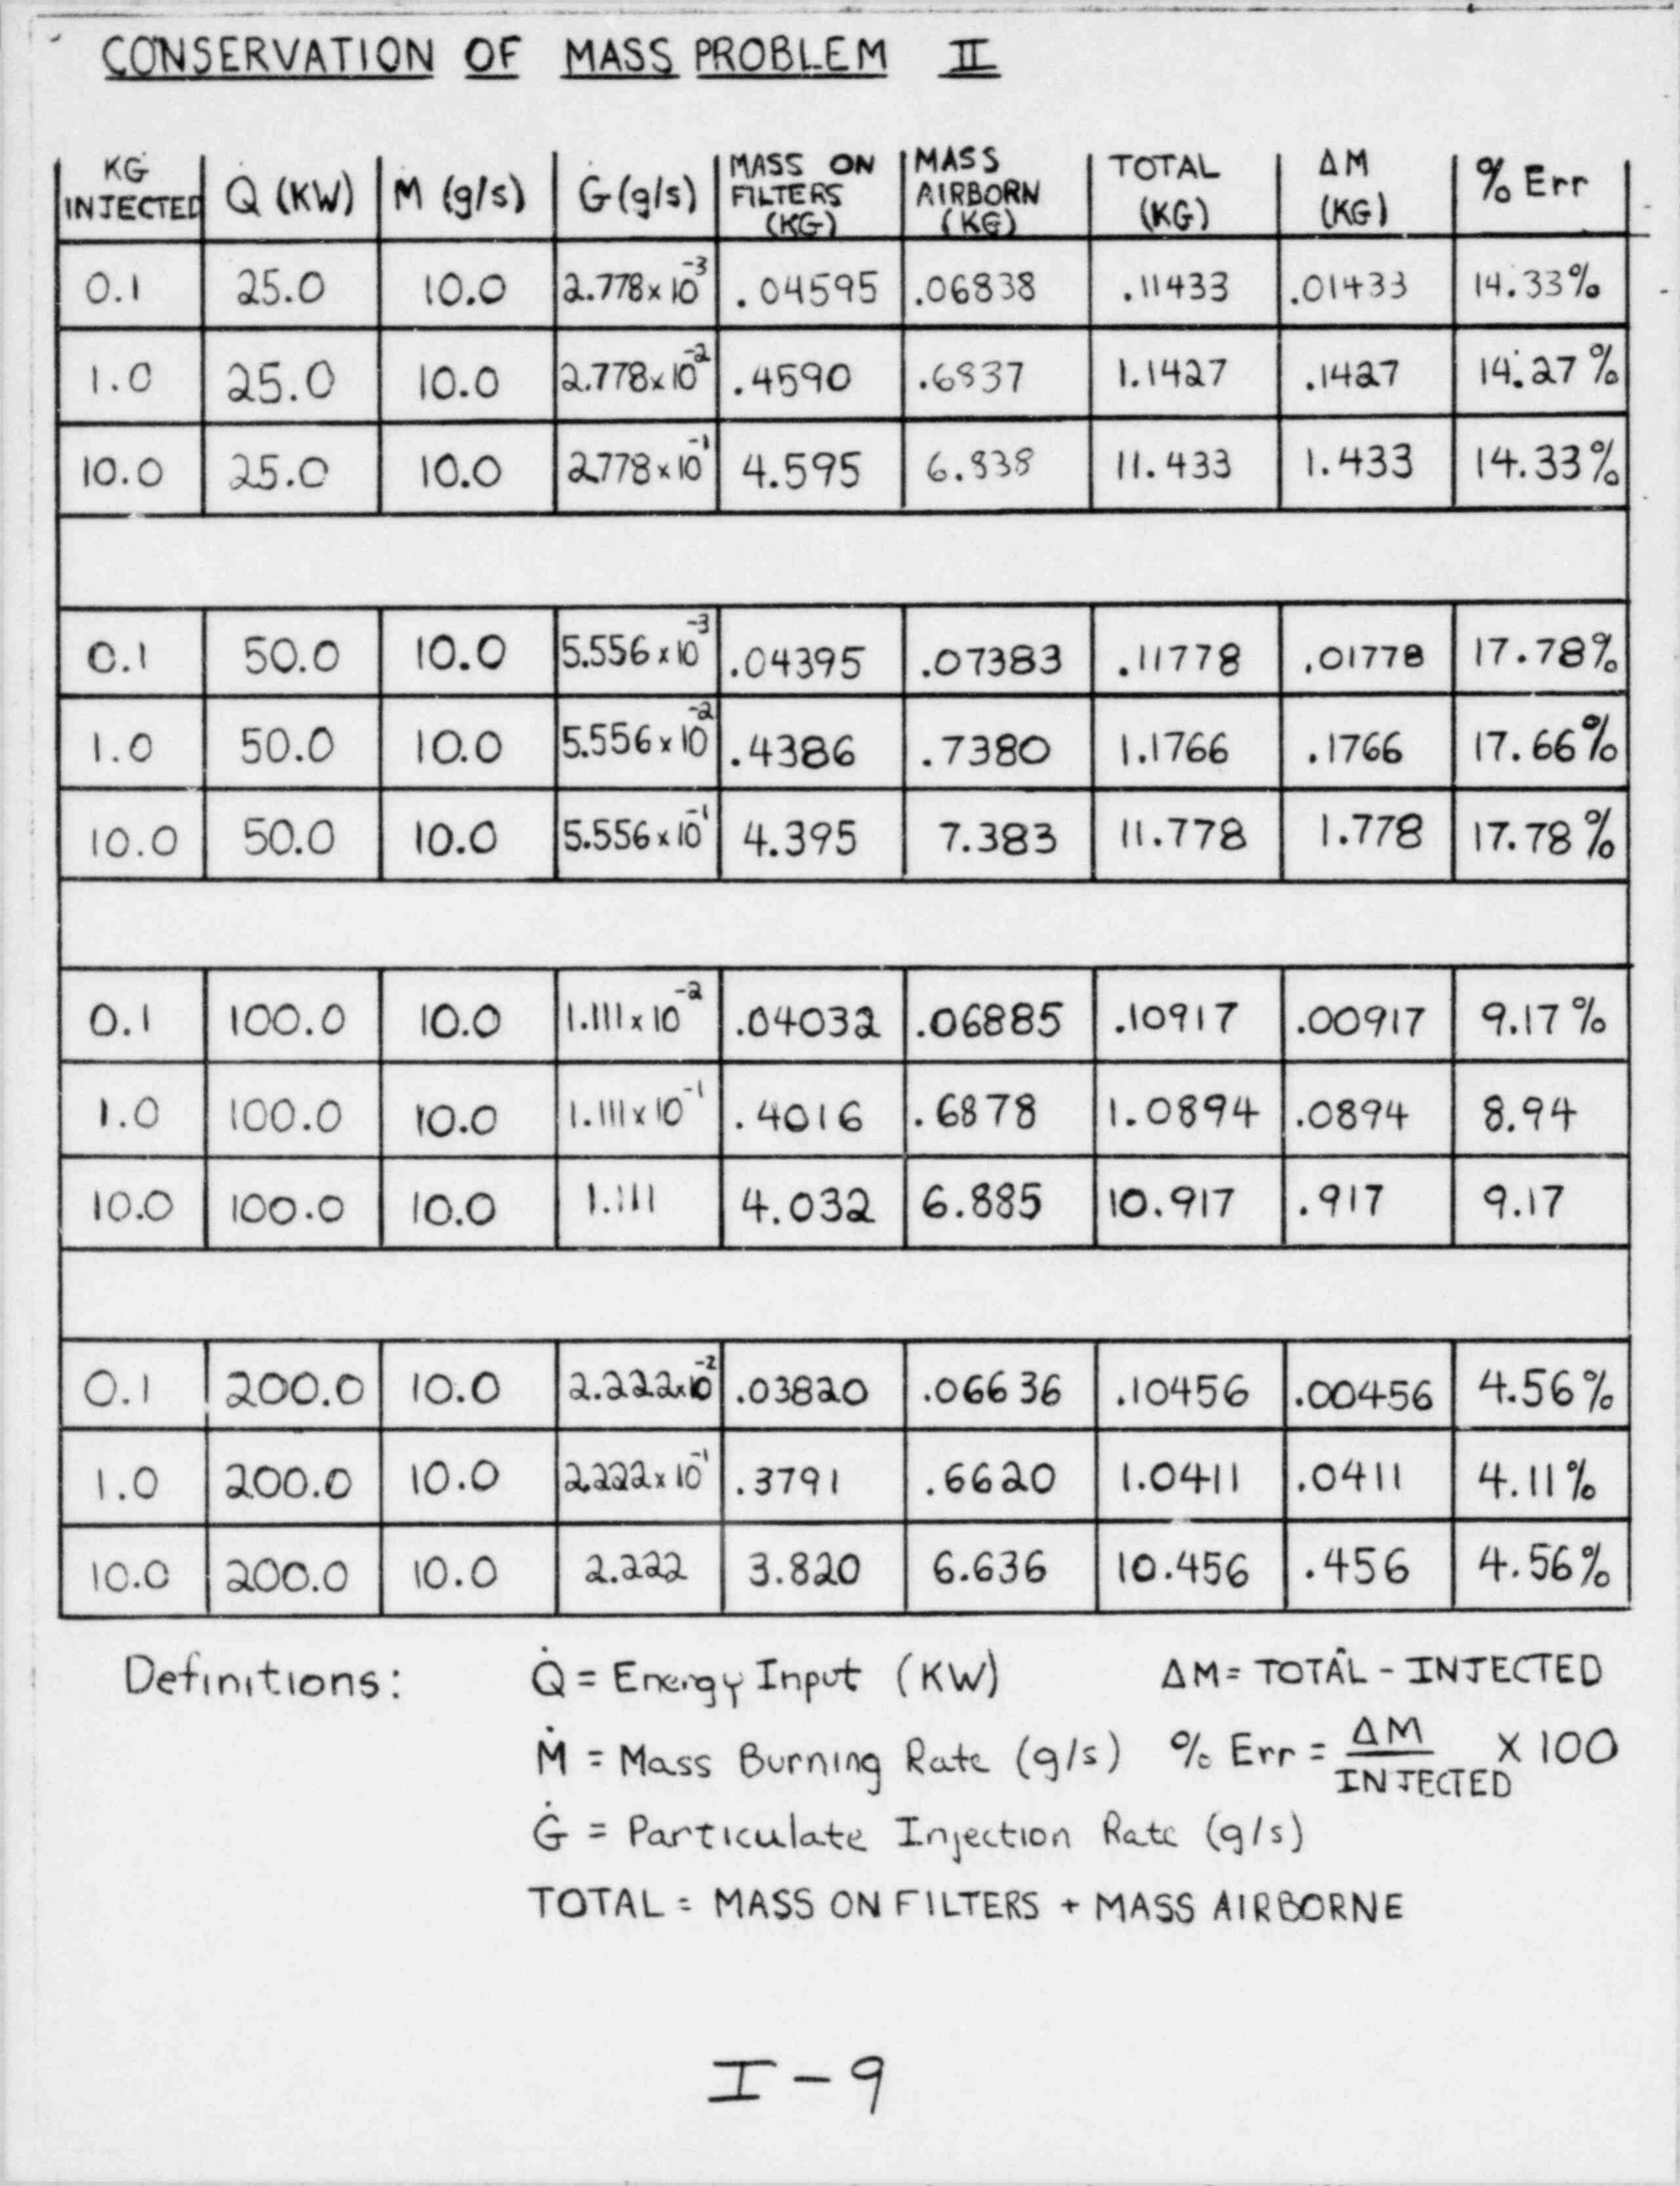 CONSERVATION OF MASS PROBLEM II
KG INJECTED Q (KW) Ṁ (g/s) Ġ (g/s) MASS ON FILTERS (KG) MASS AIRBORN (KG) TOTAL (KG) ΔM (KG) % Err
0.1 25.0 10.0 2.778 x 10⁻³ .04595 .06838 .11433 .01433 14.33%
1.0 25.0 10.0 2.778 x 10⁻² .4590 .6837 1.1427 .1427 14.27%
10.0 25.0 10.0 2.778 x 10⁻¹ 4.595 6.838 11.433 1.433 14.33%
0.1 50.0 10.0 5.556 x 10⁻³ .04395 .07383 .11778 .01778 17.78%
1.0 50.0 10.0 5.556 x 10⁻² .4386 .7380 1.1766 .1766 17.66%
10.0 50.0 10.0 5.556 x 10⁻¹ 4.395 7.383 11.778 1.778 17.78%
0.1 100.0 10.0 1.111 x 10⁻² .04032 .06885 .10917 .00917 9.17%
1.0 100.0 10.0 1.111 x 10⁻¹ .4016 .6878 1.0894 .0894 8.94
10.0 100.0 10.0 1.111 4.032 6.885 10.917 .917 9.17
0.1 200.0 10.0 2.222 x 10⁻² .03820 .06636 .10456 .00456 4.56%
1.0 200.0 10.0 2.222 x 10⁻¹ .3791 .6620 1.0411 .0411 4.11%
10.0 200.0 10.0 2.222 3.820 6.636 10.456 .456 4.56%
Definitions: Q̇ = Energy Input (KW) ΔM = TOTAL - INJECTED
Ṁ = Mass Burning Rate (g/s) % Err = ΔM / INJECTED X 100
Ġ = Particulate Injection Rate (g/s)
TOTAL = MASS ON FILTERS + MASS AIRBORNE
I-9